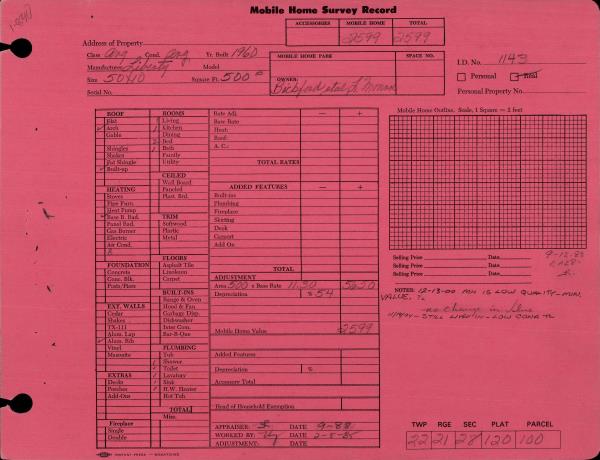 Mobile Home Survey Record
ACCESSORIES MOBILE HOME TOTAL
2599 2599
Address of Property
Class Avg Cond. Avg Yr. Built 1960
Manufacturer Liberty Model
Size 50x10 Square Ft. 500
Serial No.
MOBILE HOME PARK SPACE NO.
OWNER:
I.D. No. 1143
Personal Real
Personal Property No.
ROOF
Flat
Arch
Gable
Shingles
Shakes
Pat Shingle
Built-up
HEATING
Stoves
Pipe Furn.
Heat Pump
Base B. Rad.
Panel Rad.
Gas Burner
Electric
Air Cond.
FOUNDATION
Concrete
Conc. Blk.
Posts/Piers
EXT. WALLS
Cedar
Shakes
TX-111
Alum. Lap
Alum. Rib
Vinyl
Masonite
EXTRAS
Decks
Porches
Add-Ons
Fireplace
Single
Double
ROOMS
Living
Kitchen
Dining
2 Bed
1 Bath
Family
Utility
CEILED
Wall Board
Paneled
Plast. Brd.
TRIM
Softwood
Plastic
Metal
FLOORS
Asphalt Tile
Linoleum
Carpet
BUILT-INS
Range & Oven
Hood & Fan
Garbage Disp.
Dishwasher
Inter Com.
Bar-B-Que
PLUMBING
Tub
Shower
1 Toilet
1 Lavatory
1 Sink
1 H.W. Heater
Hot Tub
TOTAL
Misc.
Rate Adj. — +
Base Rate
Heat:
Roof:
A. C.:
TOTAL RATES
ADDED FEATURES — +
Built-ins
Plumbing
Fireplace
Skirting
Deck
Carport
Add On
TOTAL
ADJUSTMENT
Area 500 x Base Rate 11.30 5650
Depreciation % 54
Mobile Home Value 2599
Added Features
Depreciation %
Accessory Total
Head of Household Exemption
APPRAISER: DATE 9-88
WORKED BY: DATE 2-5-85
ADJUSTMENT: DATE
Mobile Home Outline, Scale, 1 Square = 2 feet
Selling Price Date 9-12-88
Selling Price Date
Selling Price Date
NOTES: 12-13-00 MH IS LOW QUALITY-MIN.
VALUE. TL
no change in
STILL LIVED IN - LOW COND TL
TWP RGE SEC PLAT PARCEL
22 21 28 120 100